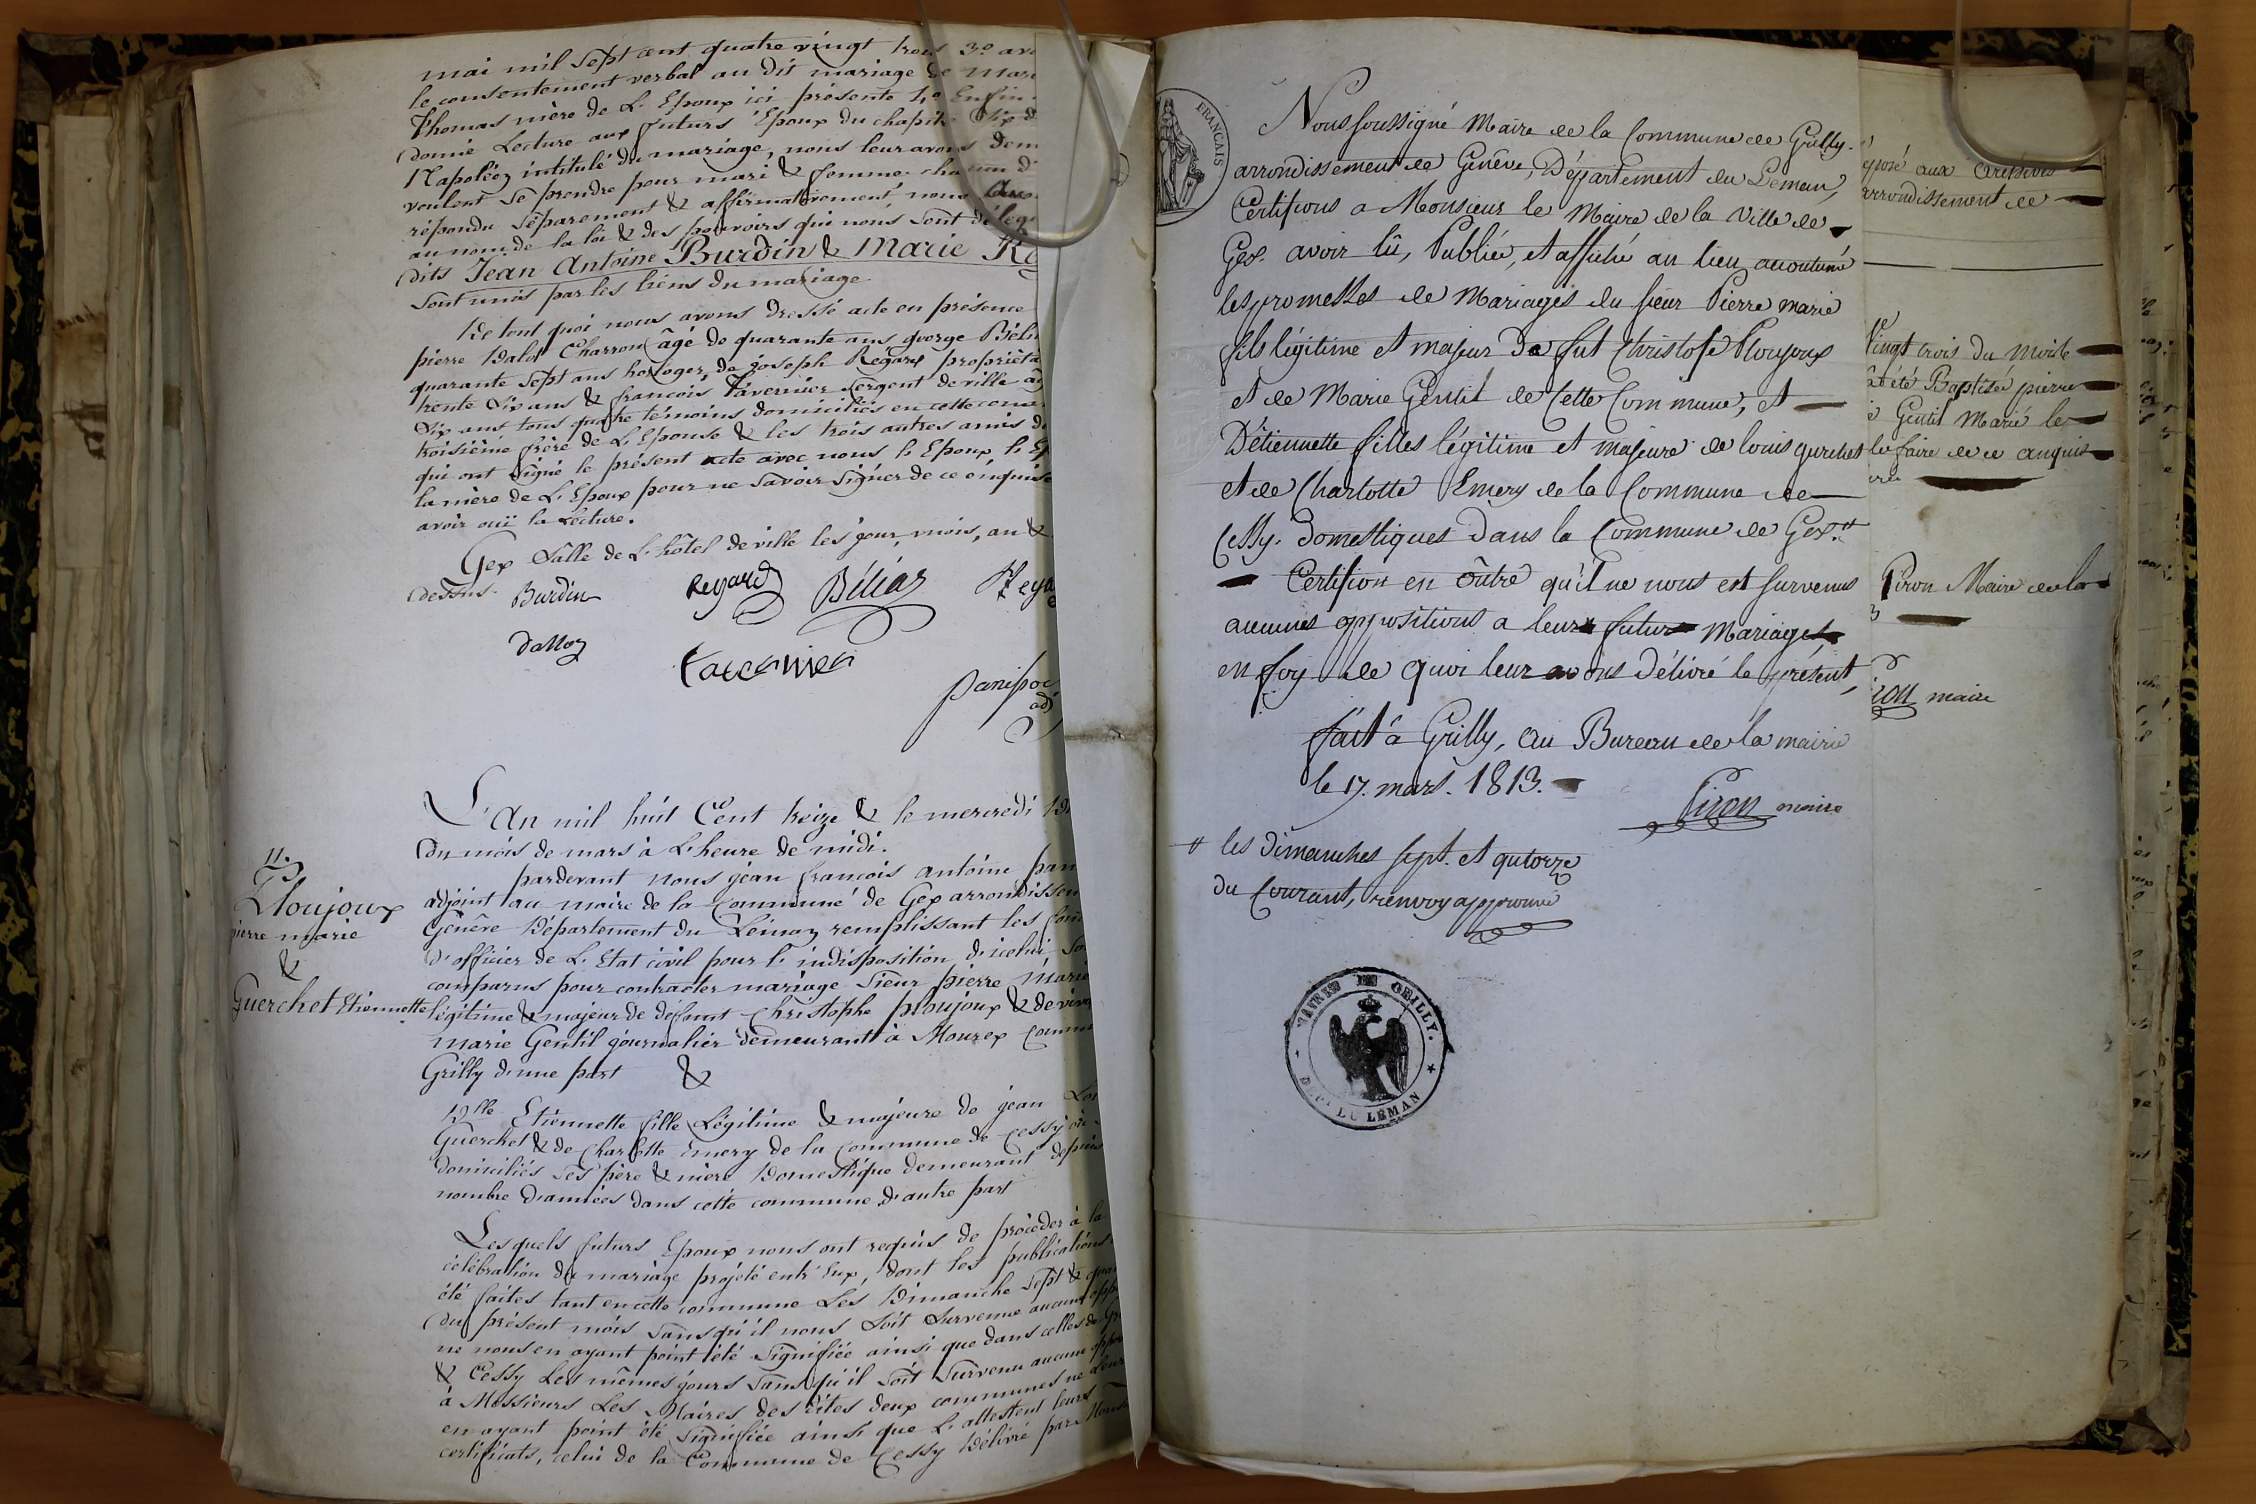 mai mil sept cent quatre vingt trois 3.o
le consentement verbal au dit mariage de
Thomas mère de L'Epoux ici présente 4.o Enfin
donné Lecture aux futurs Epoux du chapitre Six
Napoléon intitulé du mariage, nous leur avons
veulent se prendre pour mari & femme chacun
répondu séparement & affirmativement, nous
au nom de la loi & des pouvoirs qui nous sont
dits Jean Antoine Burdin & Marie
Sont unis par les liens du mariage
De tout quoi nous avons dressé acte en présence
pierre Dalloz Charron âgé de quarante ans george
quarante sept ans horloger, de joseph Regard
trente Six ans & françois Tavernier Sergent de ville
Six ans tous quatre témoins domiciliés en cette
troisième frère de L'Epouse & les trois autres amis
qui ont signé le présent acte avec nous & Epoux,
la mère de L'Epoux pour ne savoir signer de ce enquise
avoir oui la Lecture.
Gex Salle de L'hôtel de ville les jour, mois, an &
dessus. Burdin Regard Béliaz
Dalloz Tavernier
L'An mil huit Cent treize & le mercredi
du mois de mars à L'heure de midi.
pardevant nous jean françois antoine
adjoint au maire de la Commune de Gex
Genêve Département du Léman remplissant les
d'officier de L'Etat civil pour l'indisposition d'icelui
comparus pour contracter mariage Sieur pierre Marie
légitime & majeur de défunt Christophe ploujoux &
marie Gentil journalier demeurant à Mourex
Grilly d'une part &
11.
Ploujoux
pierre marie
&
Guerchet Etiennette
Dlle Etiennette fille Légitime & majeure de jean
Guerchet & de Charlotte Emery de la Commune de Cessy
domiciliés ses père & mère Domestique demeurant depuis
nombre d'années dans cette commune d'autre part
Lesquels futurs Epoux nous ont requis de procéder à la
célébration du mariage projeté entr'Eux, dont les publications
été faites tant en cette commune Les Dimanche Sept &
du présent mois Sans qu'il nous Soit Survenue aucune
ne nous en ayant point été Signifiée ainsi que dans celles de
& Cessy Les mêmes jours Sans qu'il soit Survenu aucune
à Messieurs Les Maires des dites deux communes ne
en ayant point été Signifiée ainsi que L'attestent leurs
certificats, celui de la Commune de Cessy Délivré par
FRANCAIS
Nous soussigné Maire de la Commune de Grilly.
arrondissement de Genêve, Département du Leman,
Certifions a Monsieur le Maire de la Ville de
Gex. avoir lû, Publiée, et affiché au lieu acoutumé
les promesses de Mariages du sieur Pierre marie
fils légitime et majeur De fut Christofe Ploujoux
et de Marie Gentil de Cette Commune, et
D'étiennette filles légitime et majeure de louis gurchet
et de Charlotte Emery de la Commune de
Cessy. domestiques Dans la Commune de Gex.#
Certifion en outre qu'il ne nous est survenus
aucunes oppositions a leur futur Mariages
en foy de quoi leur avons Délivré le présent,
fait à Grilly, au Bureau de la mairie
le 17. mars. 1813.
Piron maire
# les dimanches sept. et qutorze
du Courant, renvoy approuvé
MAIRIE DE GRILLY.
DEPT DU LEMAN
aux archives
arrondissement de
Vingt trois du Mois
été Baptisé pierre
Gentil Marié
faire de ce anquis
Piron Maire de la
maire